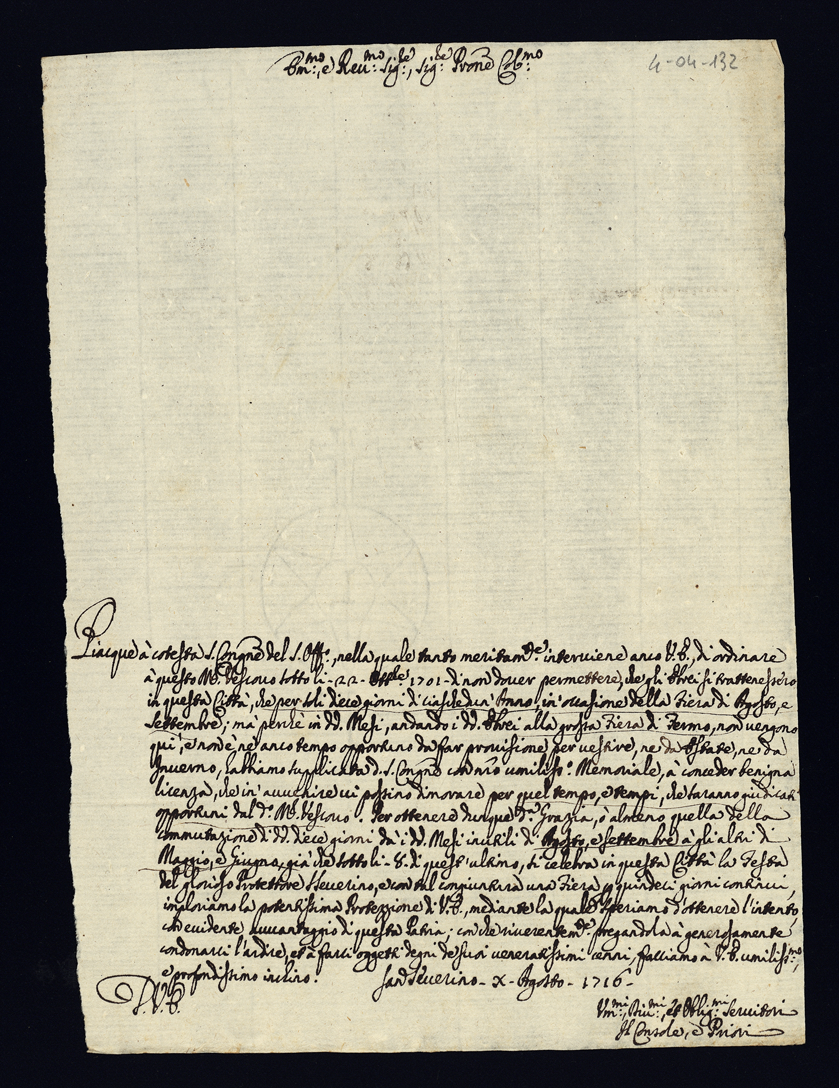 Em:mo, e Reu:mo Sig:re, Sig:re Prone Col:mo
4-04-132
Piacque à cotesta S. Congne del S. Off:o, nella quale tanto meritam:te interviene anco V.E., di ordinare
à questo M:r Vescovo sotto li - 22 - 1701 - di non dover permettere, che gli Ebrei si trattenessero
in questa Città, che per soli diece giorni di ciaschedun' Anno, in occasione della Fiera di Agosto, e
Settembre; mà perchè in dd. Mesi, andando i dd. Ebrei alla grossa Fiera di Fermo, non vengono
qui, e non è ne anco tempo opportuno da far provisione per vestire, ne da Estate, ne da
Inverno, habbiamo supplicata d. S. Congne con nro umiliss:o Memoriale, à conceder benigna
licenza, che in avvenire vi possino dimorare per quel tempo, e tempi, che saranno giudicati
opportuni dal d:o M:r Vescovo. Per ottenere dunque d:a Grazia, ò almeno quella della
commutazione di dd. diece giorni da i dd. Mesi inutili di Agosto, e Settembre à gli altri di
Maggio, e Giugno, già che sotto li - 8 - di quest' ultimo, si celebra in questa Città la Festa
del glorioso Protettore S. Severino, e con tal congiuntura una Fiera p quindeci giorni continui,
imploriamo la potentissima Protezzione di V.E., mediante la quale speriamo d'ottenere l'intento,
con evidente avvantaggio di questa Patria; con che riverentem:te pregandola à generosamente
condonarci l'ardire, et à farci oggetti degni de suoi veneratissimi cenni, facciamo à V.E. umiliss:mo,
e profondissimo inchino. San Severino - X - Agosto - 1716 -
D. V. E.
Vm:mi, Div:mi, et Oblig:mi Servitori
Il Console, e Priori